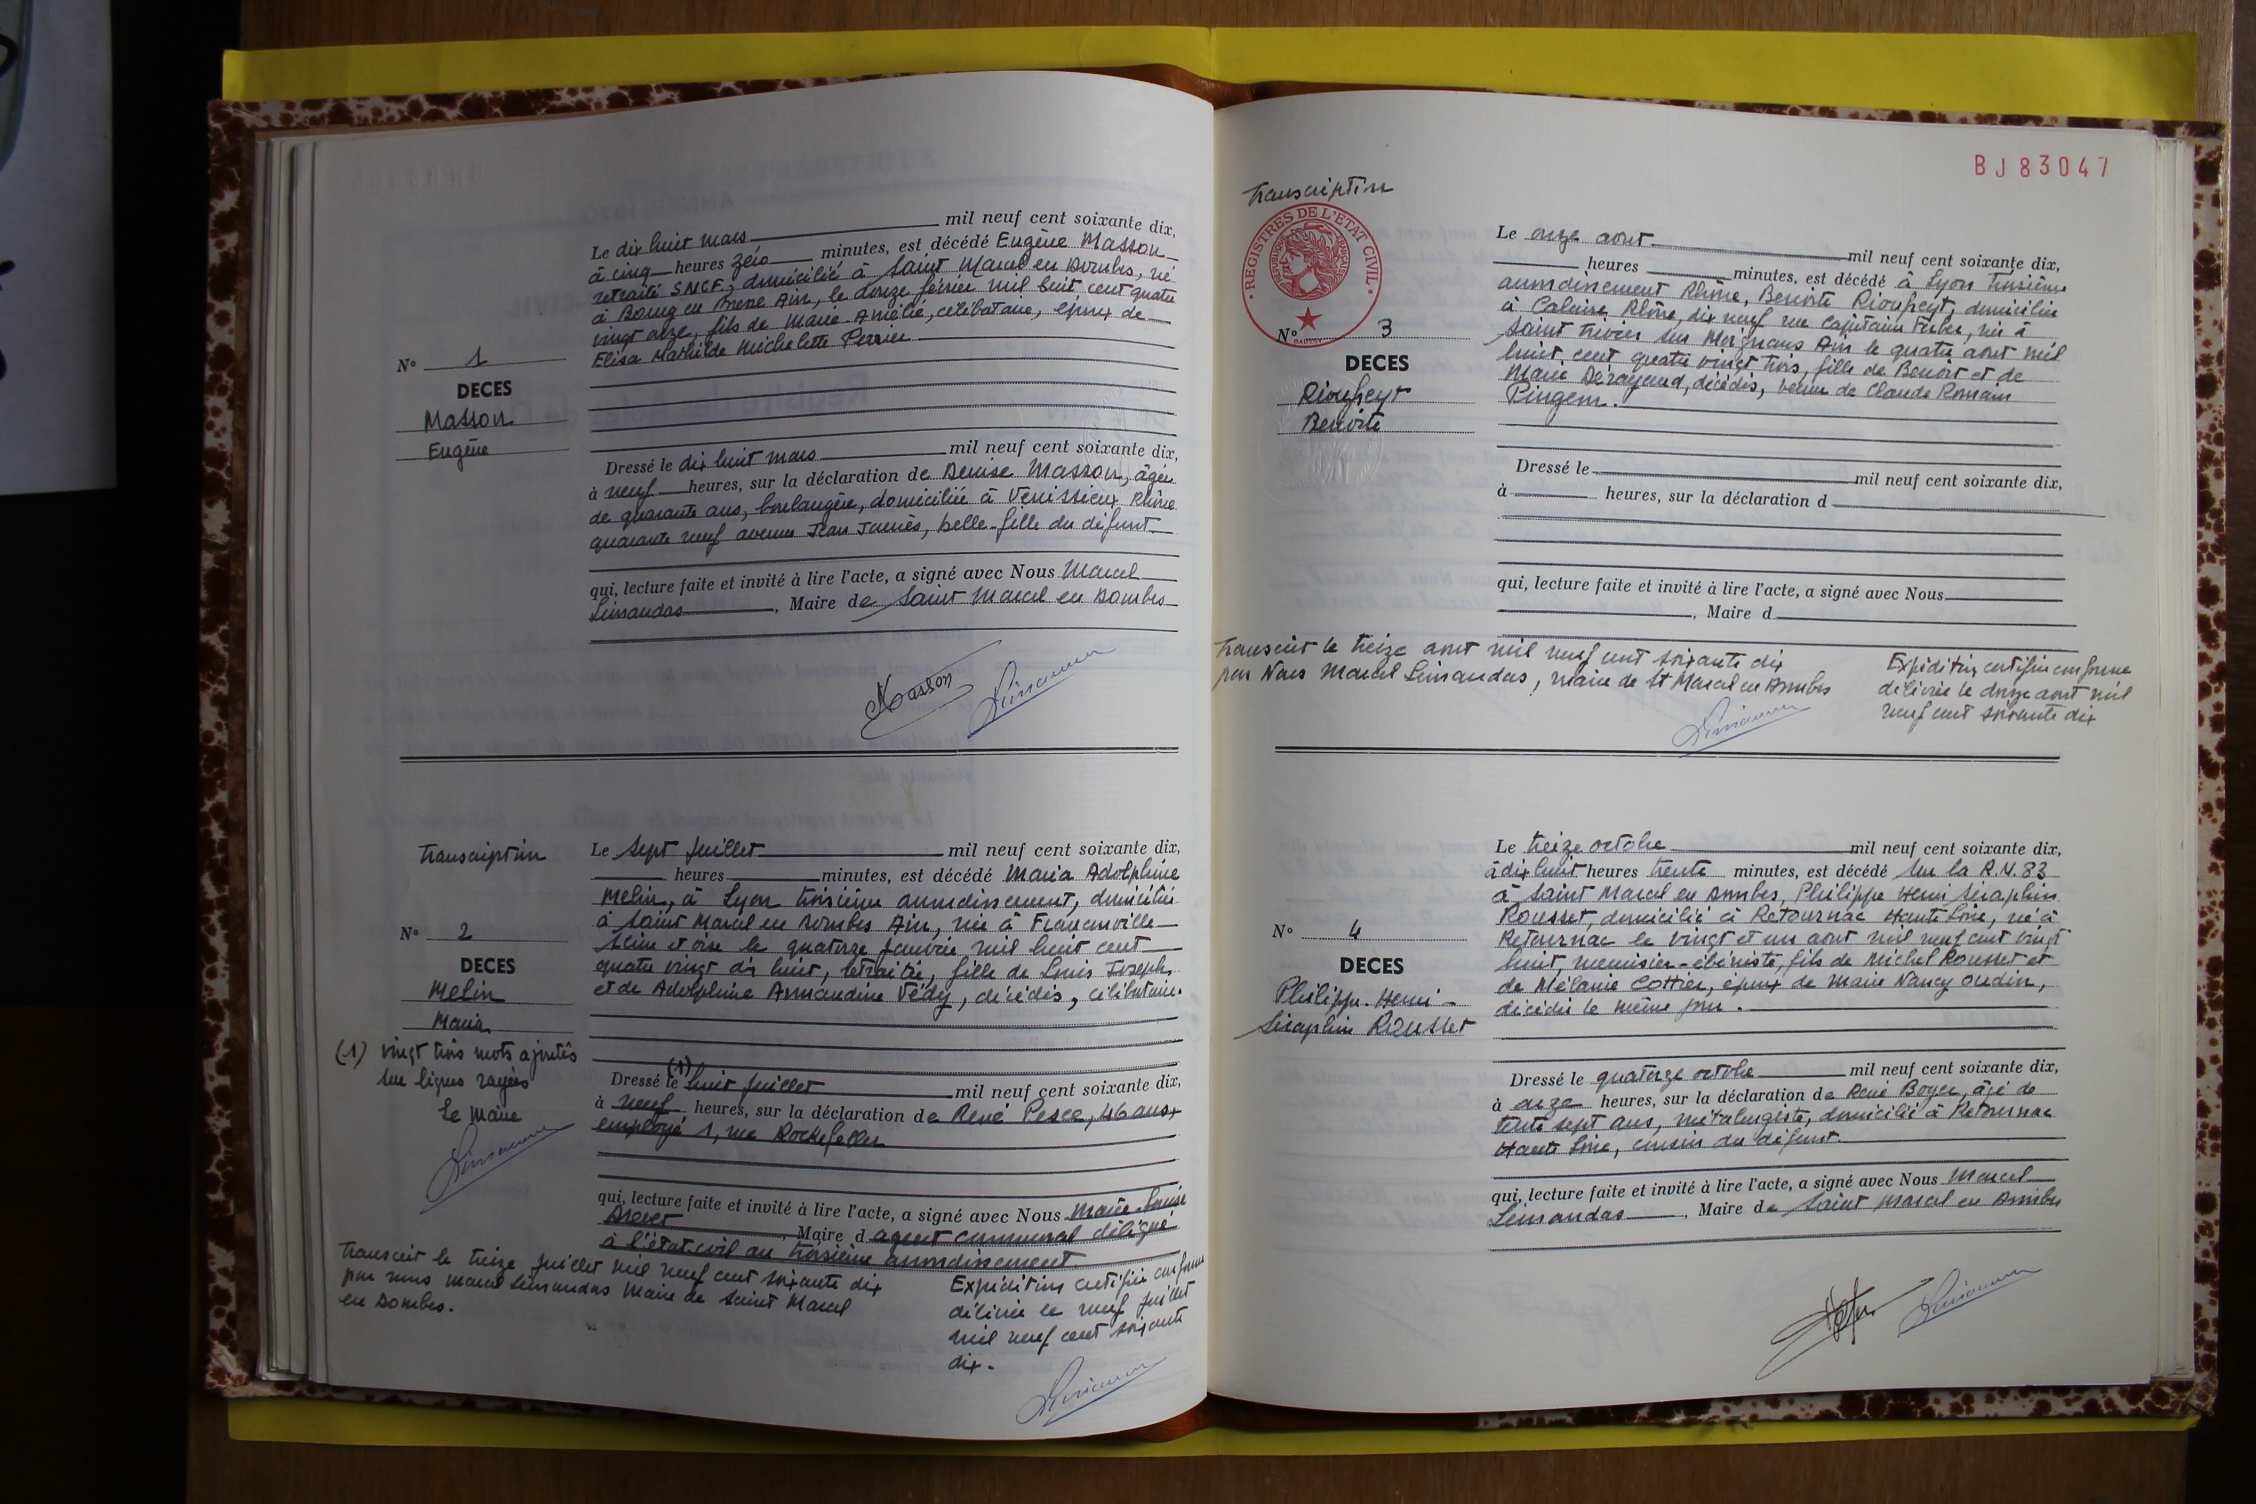 mil neuf cent soixante dix,
Le dix huit mars
à cinq heures zéro minutes, est décédé Eugène Masson
retraité SNCF, domicilié à Saint Marcel en Dombes, né
à Bourg en Bresse Ain, le douze février mil huit cent quatre
vingt onze, fils de Marie Amélie, célibataire, époux de
Elisa Mathilde Michelette Perrier
N° 1
DECES
Masson
Eugène
Dressé le dix huit mars mil neuf cent soixante dix,
à neuf heures, sur la déclaration de Denise Masson, âgée
de quarante ans, boulangère, domiciliée à Venissieux Rhône
quarante neuf avenue Jean Jaurès, belle-fille du défunt
qui, lecture faite et invité à lire l'acte, a signé avec Nous Marcel
Limandas, Maire de Saint Marcel en Dombes
Masson
Transcription
Le sept juillet mil neuf cent soixante dix,
heures minutes, est décédé Maria Adolphine
Melin, à Lyon troisième arrondissement, domiciliée
à Saint Marcel en Dombes Ain, née à Franconville
Seine et oise le quatorze janvier mil huit cent
quatre vingt dix huit, retraitée, fille de Louis Joseph,
et de Adolphine Armandine Védy, décédés, célibataire.
N° 2
DECES
Melin
Maria
(1) vingt trois mots ajoutés
sur lignes rayées
Le maire
(1)
Dressé le huit juillet mil neuf cent soixante dix,
à neuf heures, sur la déclaration de René Pesce, 46 ans,
employé 1, rue Rockefeller
qui, lecture faite et invité à lire l'acte, a signé avec Nous Marie Louise
Maire d agent communal délégué
à l'état civil au troisième arrondissement
Transcrit le treize juillet mil neuf cent soixante dix
par nous Marcel Limandas Maire de Saint Marcel
en Dombes.
Expédition certifiée conforme
délivrée le neuf juillet
mil neuf cent soixante
dix.
BJ83047
Transcription
REGISTRES DE L'ETAT CIVIL
N° 3
DECES
Rioufreyt
Benoîte
Le onze aout mil neuf cent soixante dix,
heures minutes, est décédé à Lyon troisième
arrondissement Rhône, Benoîte Rioufreyt, domiciliée
à Caluire, Rhône, dix neuf rue Capitaine Ferber, née à
Saint Trivier sur Moignans Ain le quatre aout mil
huit cent quatre vingt trois, fille de Benoît et de
Marie Dérayaud, décédés, veuve de Claude Romain
Pingeon.
Dressé le mil neuf cent soixante dix,
à heures, sur la déclaration d
qui, lecture faite et invité à lire l'acte, a signé avec Nous
, Maire d
Transcrit le treize aout mil neuf cent soixante dix
par Nous Marcel Limandas, maire de St Marcel en Dombes
Expédition certifiée conforme
délivrée le douze aout mil
neuf cent soixante dix
Le treize octobre mil neuf cent soixante dix,
à dix huit heures trente minutes, est décédé sur la R.N. 83
à Saint Marcel en Dombes, Philippe Henri Séraphin
Rousset, domicilié à Retournac Haute Loire, né à
Retournac le vingt et un aout mil neuf cent vingt
huit, menuisier-ébéniste, fils de Michel Rousset et
de Mélanie Cottier, époux de Marie Nancy Oudin,
décédée le même jour.
N° 4
DECES
Philippe-Henri-
Séraphin Rousset
Dressé le quatorze octobre mil neuf cent soixante dix,
à onze heures, sur la déclaration de René Boyer, âgé de
trente sept ans, métalurgiste, domicilié à Retournac
Haute Loire, cousin du défunt.
qui, lecture faite et invité à lire l'acte, a signé avec Nous Marcel
Limandas, Maire de Saint Marcel en Dombes